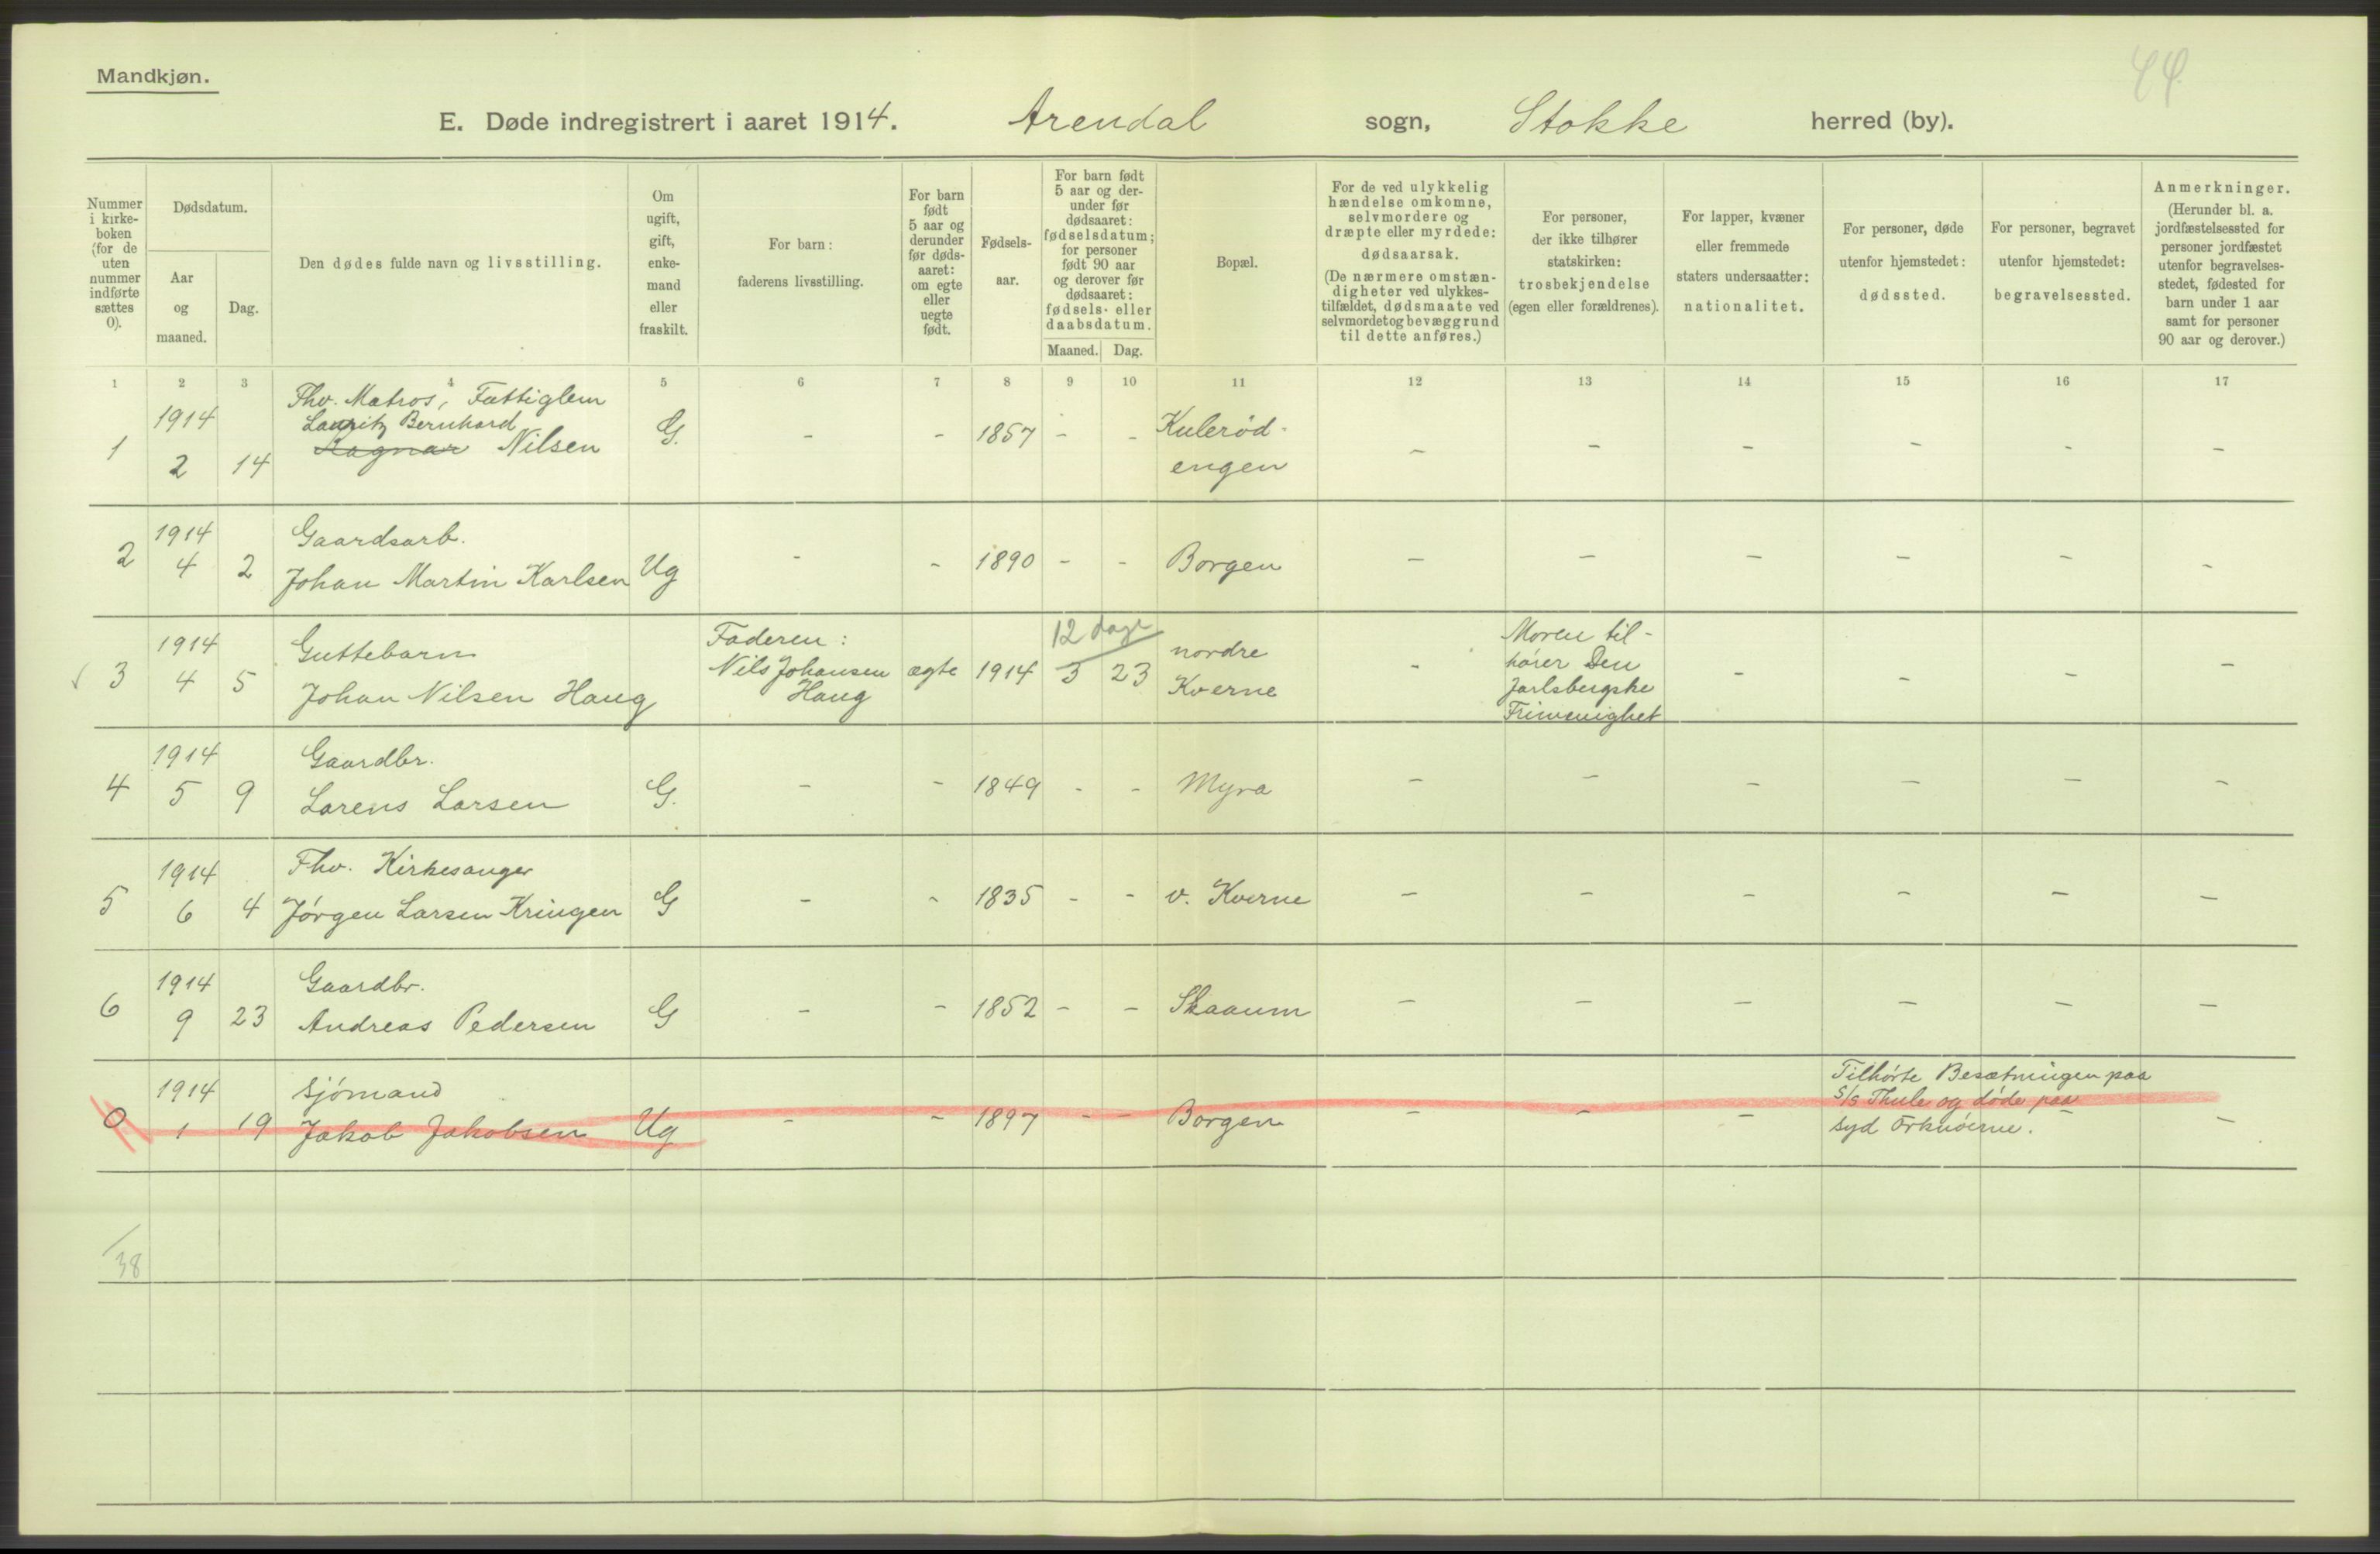 Mandkjøn.
44.
E. Døde indregistrert i aaret 1914. Arendal sogn, Stokke herred (by).
Nummer i kirke-boken (for de uten nummer indførte sættes 0).
Dødsdatum.
Aar og maaned.
Dag.
Den dødes fulde navn og livsstilling.
Om ugift, gift, enke-mand eller fraskilt.
For barn: faderens livsstilling.
For barn født 5 aar og derunder før døds-aaret: om egte eller uegte født.
Fødsels-aar.
For barn født 5 aar og der-under før dødsaaret: fødselsdatum; for personer født 90 aar og derover før dødsaaret: fødsels- eller daabsdatum.
Maaned. Dag.
Bopæl.
For de ved ulykkelig hændelse omkomne, selvmordere og dræpte eller myrdede: dødsaarsak. (De nærmere omstæn-digheter ved ulykkes-tilfældet, dødsmaate ved selvmord et og bevæggrund til dette anføres.)
For personer, der ikke tilhører statskirken: trosbekjendelse (egen eller forældrenes).
For lapper, kvæner eller fremmede staters undersaatter: nationalitet.
For personer, døde utenfor hjemstedet: dødssted.
For personer, begravet utenfor hjemstedet: begravelsessted.
Anmerkninger. (Herunder bl. a. jordfæstelsessted for personer jordfæstet utenfor begravelses-stedet, fødested for barn under 1 aar samt for personer 90 aar og derover.)
1 2 3 4 5 6 7 8 9 10 11 12 13 14 15 16 17
Fhv. Matros, Fattiglem
1914 Lauritz Bernhard
1 2 14 Ragnar Nilsen G. - - 1857 - - Kulerød-engen - - - - - -
1914 Gaardsarb.
2 4 2 Johan Martin Karlsen Ug - - 1890 - - Borgen - - - - - -
1914 Guttebarn Faderen: 12 dage nordre Moren til-
3 4 5 Johan Nilsen Haug Nils Johansen Haug ægte 1914 3 23 Kverne - hører Den Jarlsbergske Frimenighet - - - -
1914 Gaardbr.
4 5 9 Lorens Larsen G. - - 1849 - - Myra - - - - - -
1914 Fhv. Kirkesanger
5 6 4 Jørgen Larsen Kringen G - - 1835 - - v. Kverne - - - - - -
1914 Gaardbr.
6 9 23 Andreas Pedersen G - - 1852 - - Skaaum - - - - - -
1914 Sjømand Tilhørte Besætningen paa
0 1 19 Jakob Jakobsen Ug - - 1897 - - Borgen - - - S/S Thule og døde paa - -
Syd Orknøerne.
38